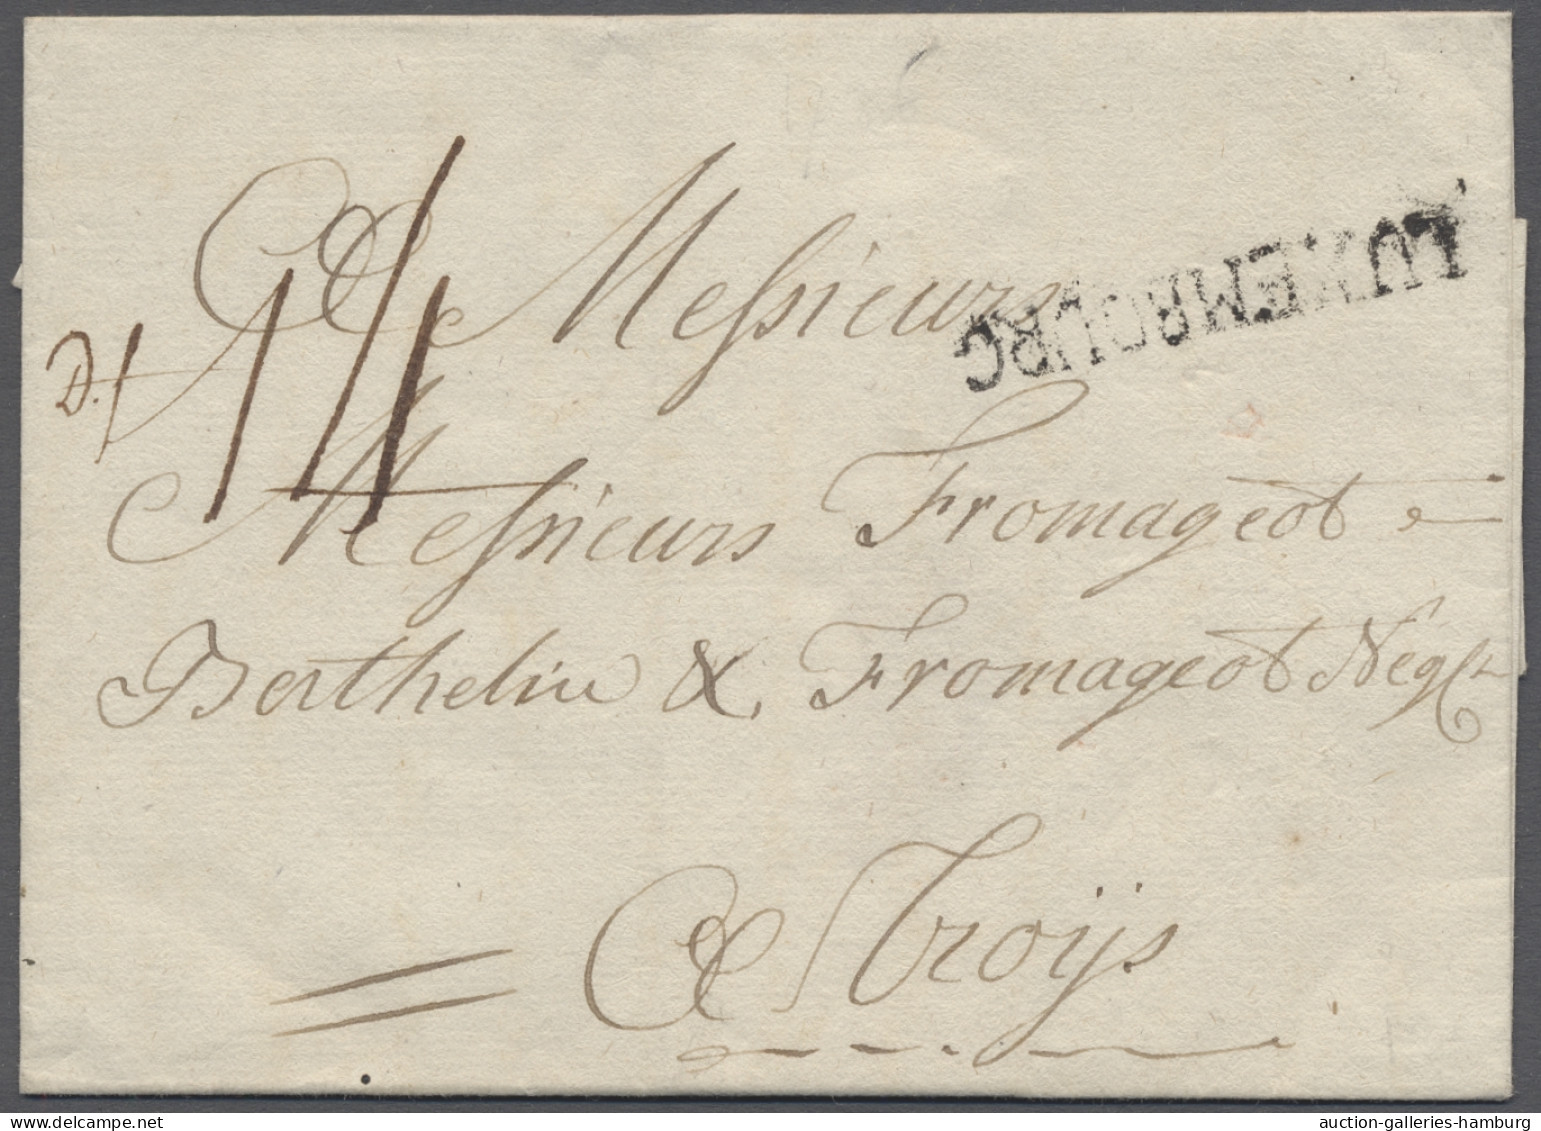 LUXEMBOURG
A Messieurs
D. 14
Messieurs Fromageot
Berthelin & Fromageot Negts
A Troijs
auction-galleries-hamburg